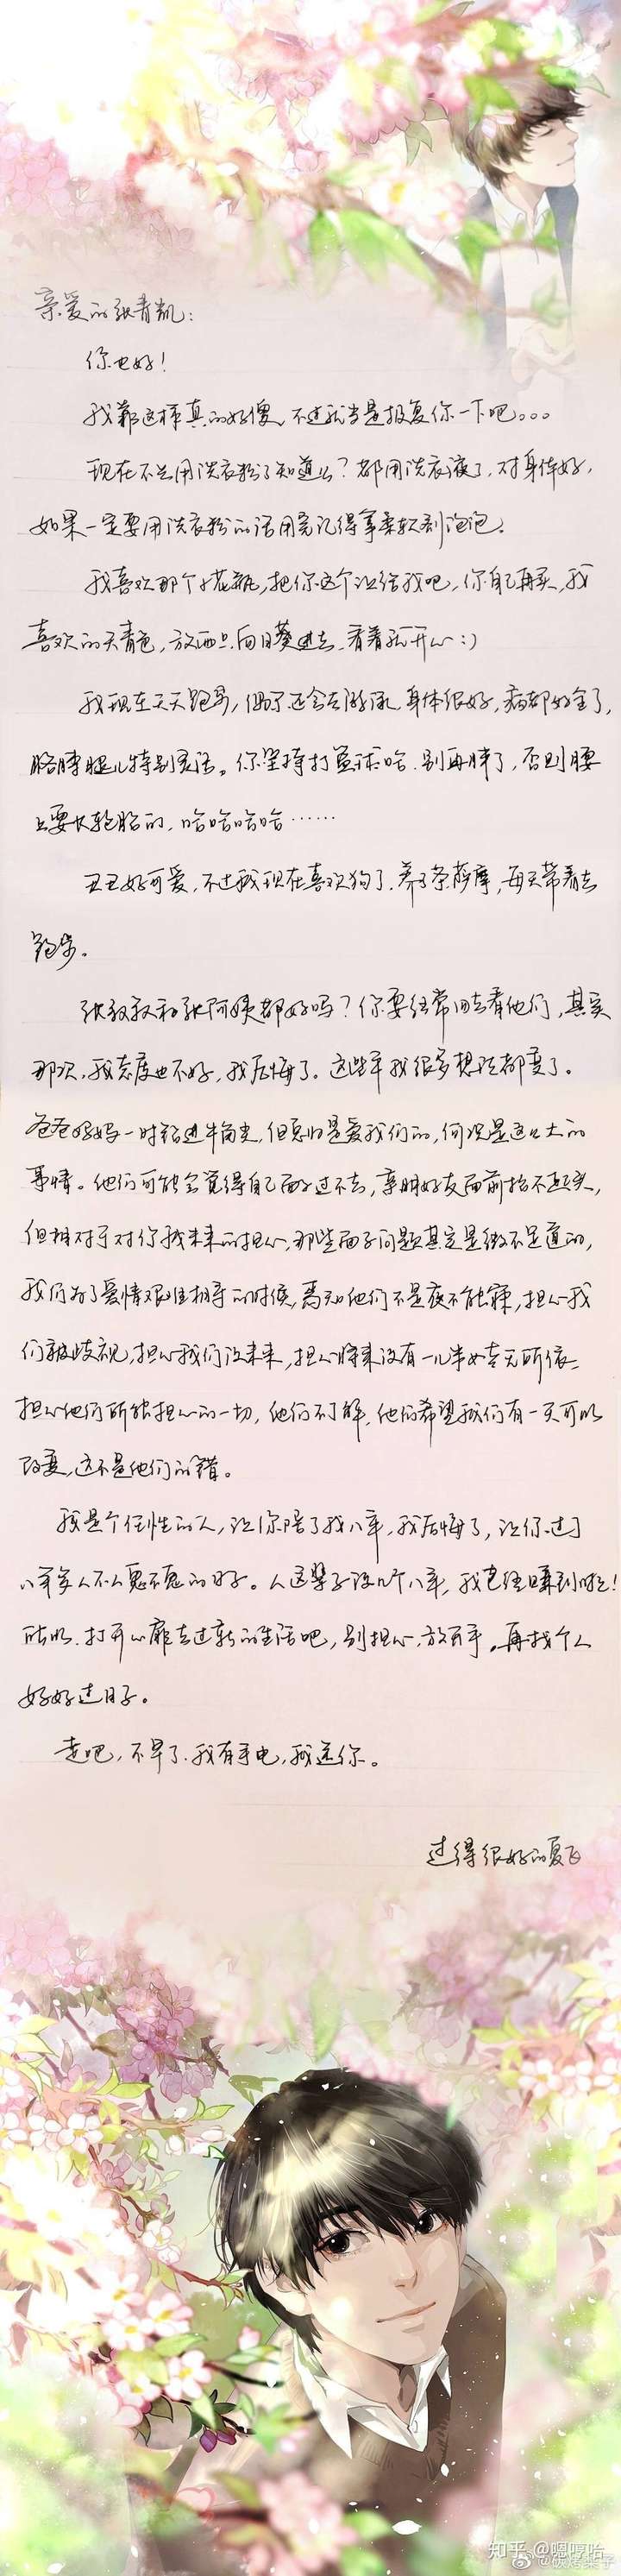 亲爱的张青凯:
你也好!
我就这样真的好傻,不过就当是报复你一下吧。。。
现在不兴用洗衣粉了知道么?都用洗衣液了,对身体好,
如果一定要用洗衣粉的话用完记得拿柔软剂泡泡。
我喜欢那个小花瓶,把你这个让给我吧,你自己再买,我
喜欢的天青色,放两只向日葵进去,看着就开心:)
我现在天天跑步,偶尔还会去游泳,身体很好,病都好全了,
胳膊腿儿特别灵活。你坚持打篮球哈,别再胖了,否则腰
上要长轮胎的,哈哈哈哈……
丑丑好可爱,不过我现在喜欢狗了,养了条萨摩,每天带着去
跑步。
张叔叔和张阿姨都好吗?你要经常回去看他们,其实
那次,我态度也不好,我后悔了。这些年我很多想法都变了。
爸爸妈妈一时钻进牛角尖,但总归是爱我们的,何况是这么大的
事情。他们可能会觉得自己面子过不去,亲朋好友面前抬不起头,
但相对于对你我未来的担心,那些面子问题其实是微不足道的,
我们为了爱情艰难相守的时候,焉知他们不是夜不能寐,担心我
们被歧视,担心我们没未来,担心将来没有一儿半女老无所依…
担心他们所能担心的一切,他们不了解,他们希望我们有一天可以
改变,这不是他们的错。
我是个任性的人,让你陪了我八年,我后悔了,让你过了
八年多人不人鬼不鬼的日子。人这辈子没几个八年,我已经赚到啦!
所以,打开心扉去过新的生活吧,别担心,放开手,再找个人
好好过日子。
走吧,不早了,我有手电,我送你。
过得很好的夏飞
知乎 @嗯哼哈